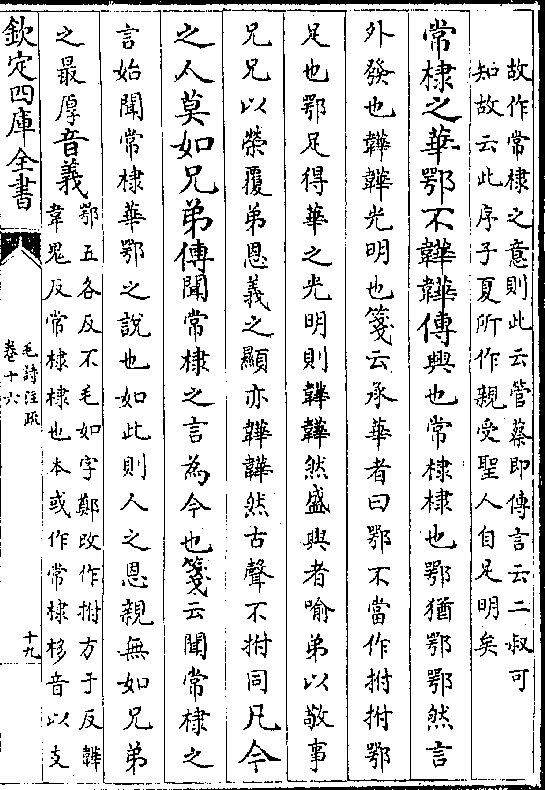 故作常棣之意則此云管蔡即傳言云二叔可
知故云此序子夏所作親受聖人自足明矣
常棣之華鄂不韡韡傳興也常棣棣也鄂猶鄂鄂然言
外發也韡韡光明也箋云承華者曰鄂不當作拊拊鄂
足也鄂足得華之光明則韡韡然盛興者喻弟以敬事
兄兄以榮覆弟恩義之顯亦韡韡然古聲不拊同凡今
之人莫如兄弟傳聞常棣之言為今也箋云聞常棣之
言始聞常棣華鄂之說也如此則人之恩親無如兄弟
之最厚音義
鄂五各反不毛如字鄭改作拊方于反韡
韋鬼反常棣棣也本或作常棣栘音以支
欽定四庫全書
毛詩注疏
卷十六
十九